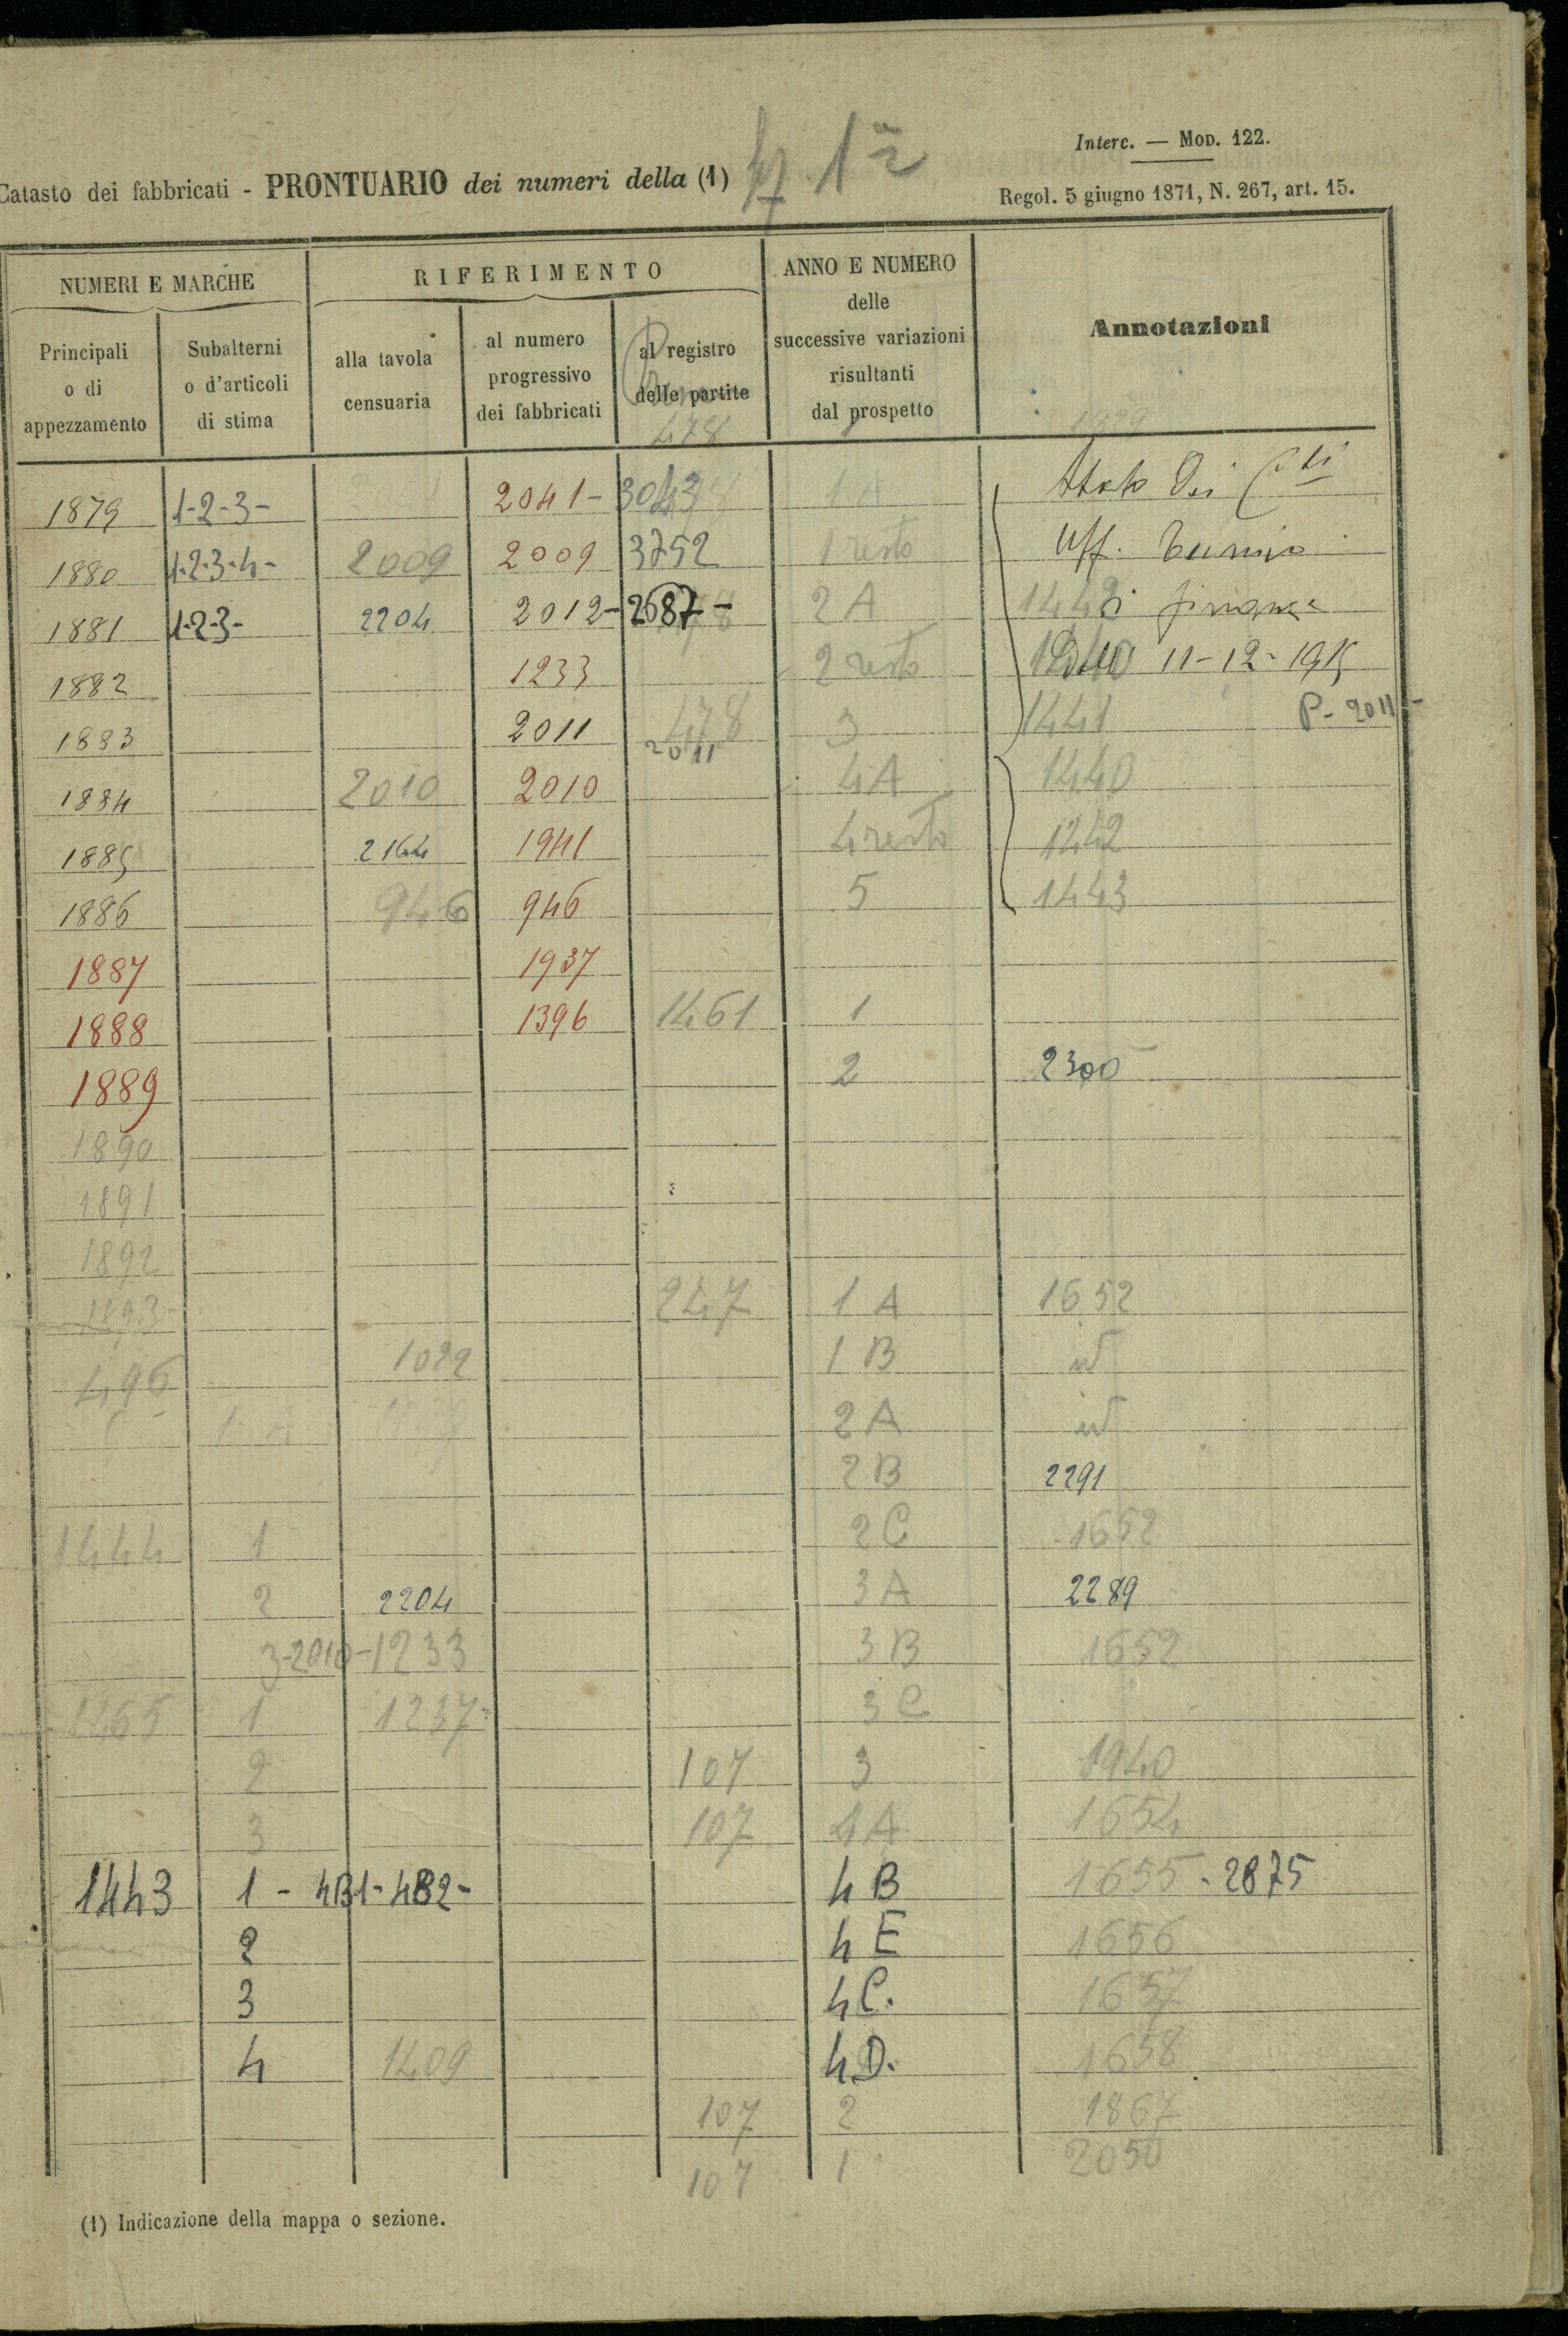 Interc. — Mod. 122.
Catasto dei fabbricati - PRONTUARIO dei numeri della (1)
Regol. 5 giugno 1871, N. 267, art. 15.
NUMERI E MARCHE
RIFERIMENTO
ANNO E NUMERO delle successive variazioni risultanti dal prospetto
Annotazioni
Principali o di appezzamento
Subalterni o d'articoli di stima
alla tavola censuaria
al numero progressivo dei fabbricati
al registro delle partite
478
1879 1-2-3- 2041- 3043 1A
1880 1-2-3-4- 2009 2009 3752 1 resto Uff.
1881 1-2-3- 2204 2012- 2687- 2A finanze
1882 1233 2 resto 11-12-1915
1883 2011 478 2011 3 1441 P- 2011-
1884 2010 2010 4A 1440
1885 2164 1941 4 resto 1442
1886 946 946 5 1443
1887 1937
1888 1396 1461 1
1889 2 2300
1890
1891
1892
1893 247 1A 1652
496 1022 1B id
2A id
2B 2291
1444 1 2C 1652
2 2204 3A 2289
3-2010-1233 3B 1652
1465 1 1237 3C
2 107 3 1940
3 107 4A 1654
1443 1 - 4B1-4B2- 4B 1655-2875
2 4E 1656
3 4C. 1657
4 1409 4D. 1658
107 2 1867
107 1 2050
(1) Indicazione della mappa o sezione.